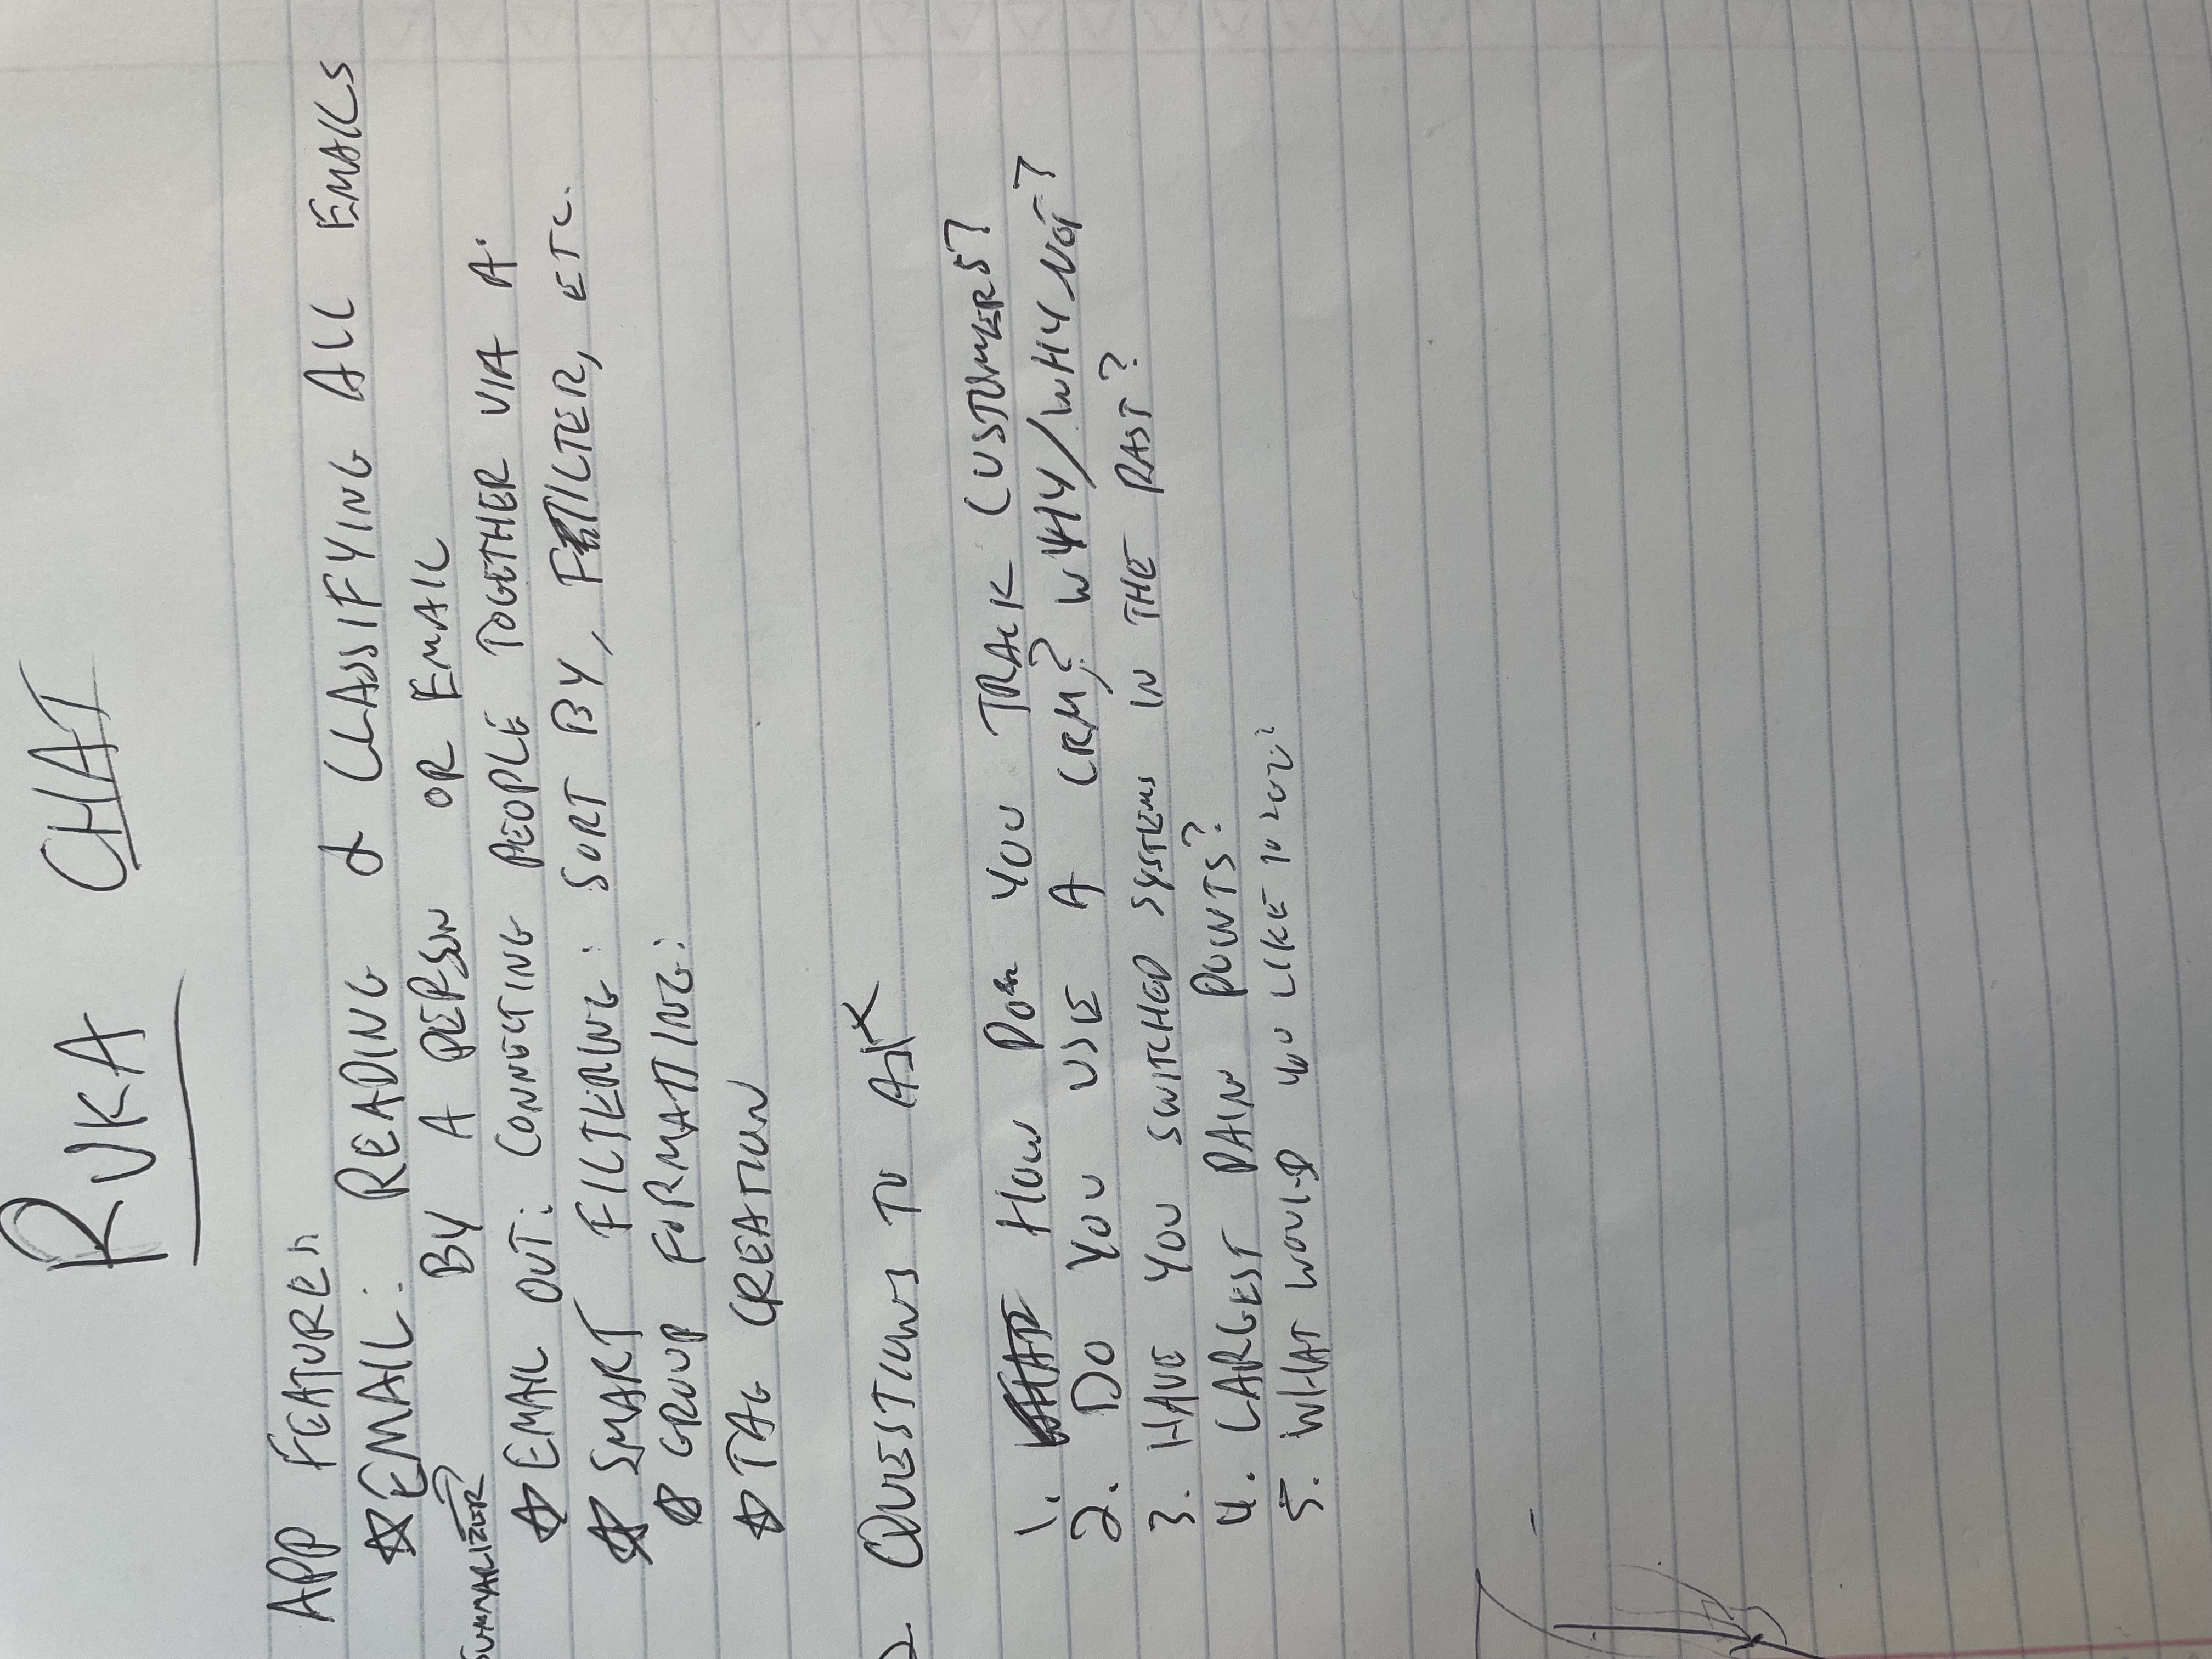 RUKA CHAT
APP FEATURES
☆ EMAIL: READING & CLASSIFYING ALL EMAILS
BY A PERSON OR EMAIL
SUMMARIZER →
☆ EMAIL OUT: CONNECTING PEOPLE TOGETHER VIA A.
☆ SMART FILTERING: SORT BY, FILTER, ETC.
☆ GROUP FORMATTING:
☆ TAG CREATION
2. QUESTIONS TO ASK
1. HOW DO YOU TRACK CUSTOMERS?
2. DO YOU USE A CRM? WHY/WHY NOT?
3. HAVE YOU SWITCHED SYSTEMS IN THE PAST?
4. LARGEST PAIN POINTS?
5. WHAT WOULD YOU LIKE TO